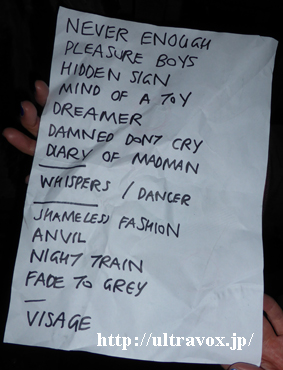 NEVER ENOUGH
PLEASURE BOYS
HIDDEN SIGN
MIND OF A TOY
DREAMER
DAMNED DONT CRY
DIARY OF MADMAN
WHISPERS / DANCER
SHAMELESS FASHION
ANVIL
NIGHT TRAIN
FADE TO GREY
VISAGE
http://ultravox.jp/